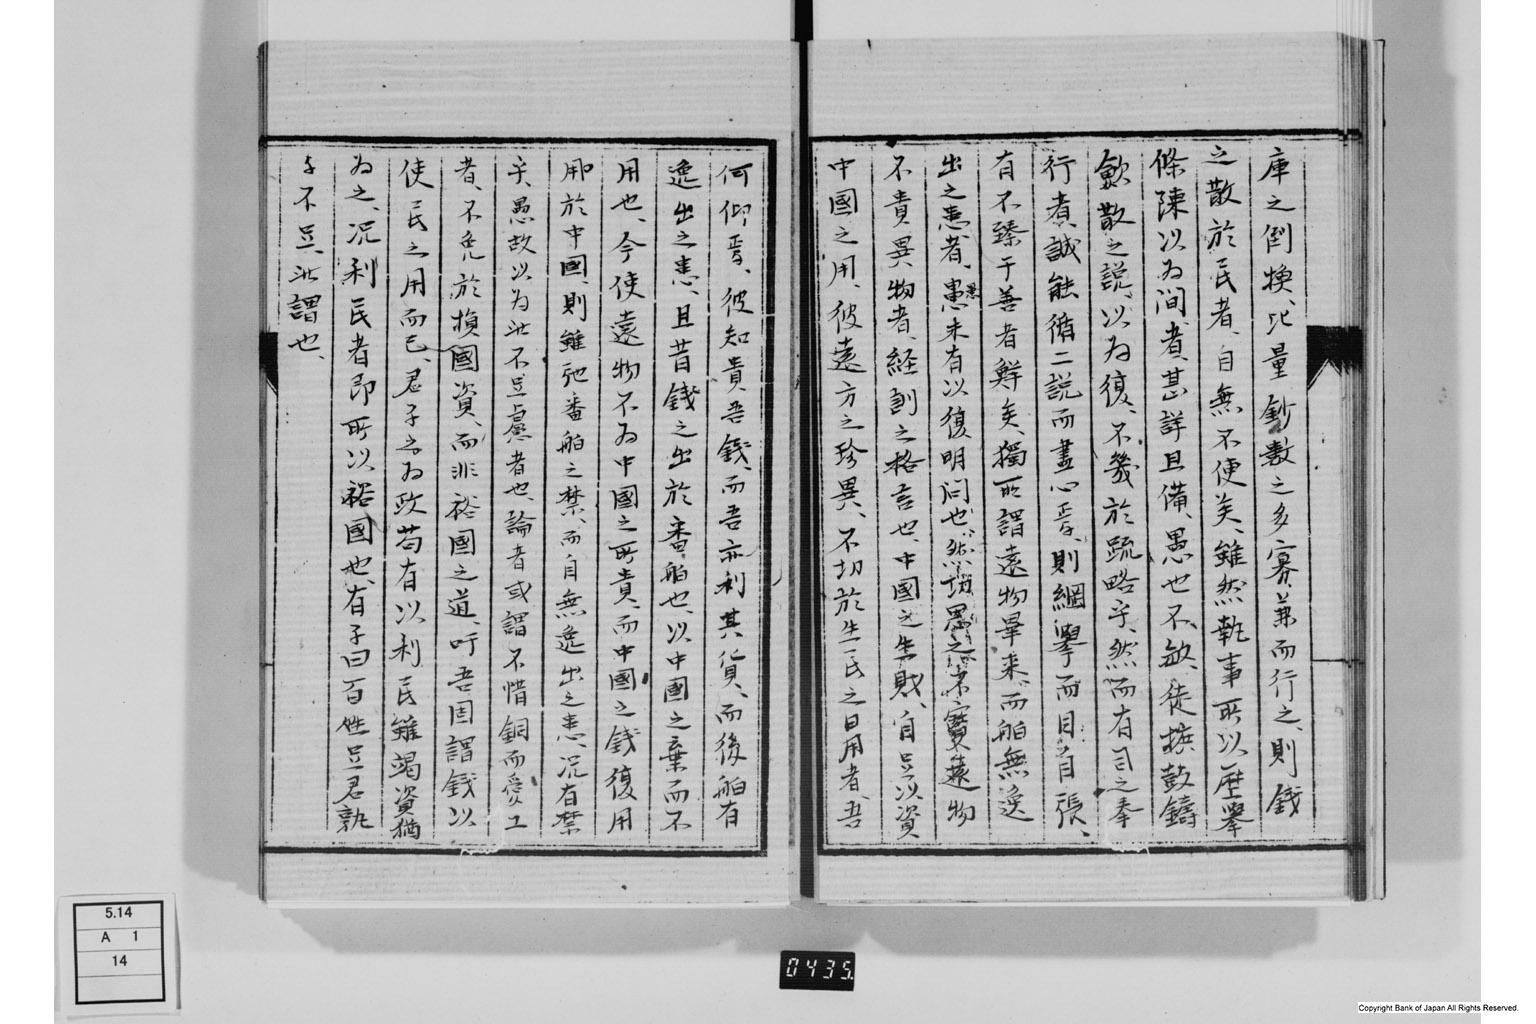 庫之倒換、比量鈔數之多寡、兼而行之、則錢
之散於民者、自無不使矣、雖然執事所以歴舉
條陳以為間者、甚詳且備、愚也不敏、徒摭鼓鑄
歛散之説、以為復、不幾於疏略乎、然而有司之奉
行者、誠能循二説而盡心焉、則綱舉而目自張、
有不臻于善者鮮矣、獨所謂遠物畢来、而舶無逸
出之患者、愚未有以復明問也、然愚之不寶遠物
不貴異物者、経訓之格言也、中國之生財、自足以資
中國之用、彼遠方之珍異、不切於生民之日用者、吾
何仰焉、彼知貴吾錢、而吾亦利其貨、而後舶有
逸出之患、且昔錢之出於番舶也、以中國之棄而不
用也、今使遠物不為中國之所貴、而中國之錢復用
用於中國、則雖弛番舶之禁、而自無逸出之患、況有禁
乎、愚故以為此不足慮者也、論者或謂不惜銅而愛工
者、不免於損國資、而非裕國之道、吁吾固謂錢以
使民之用而已、君子之為政苟有以利民雖竭資猶
為之、況利民者即所以裕國也、有子曰百姓足君孰
与不足、此謂也、
5.14
A 1
14
0435
Copyright Bank of Japan All Rights Reserved.